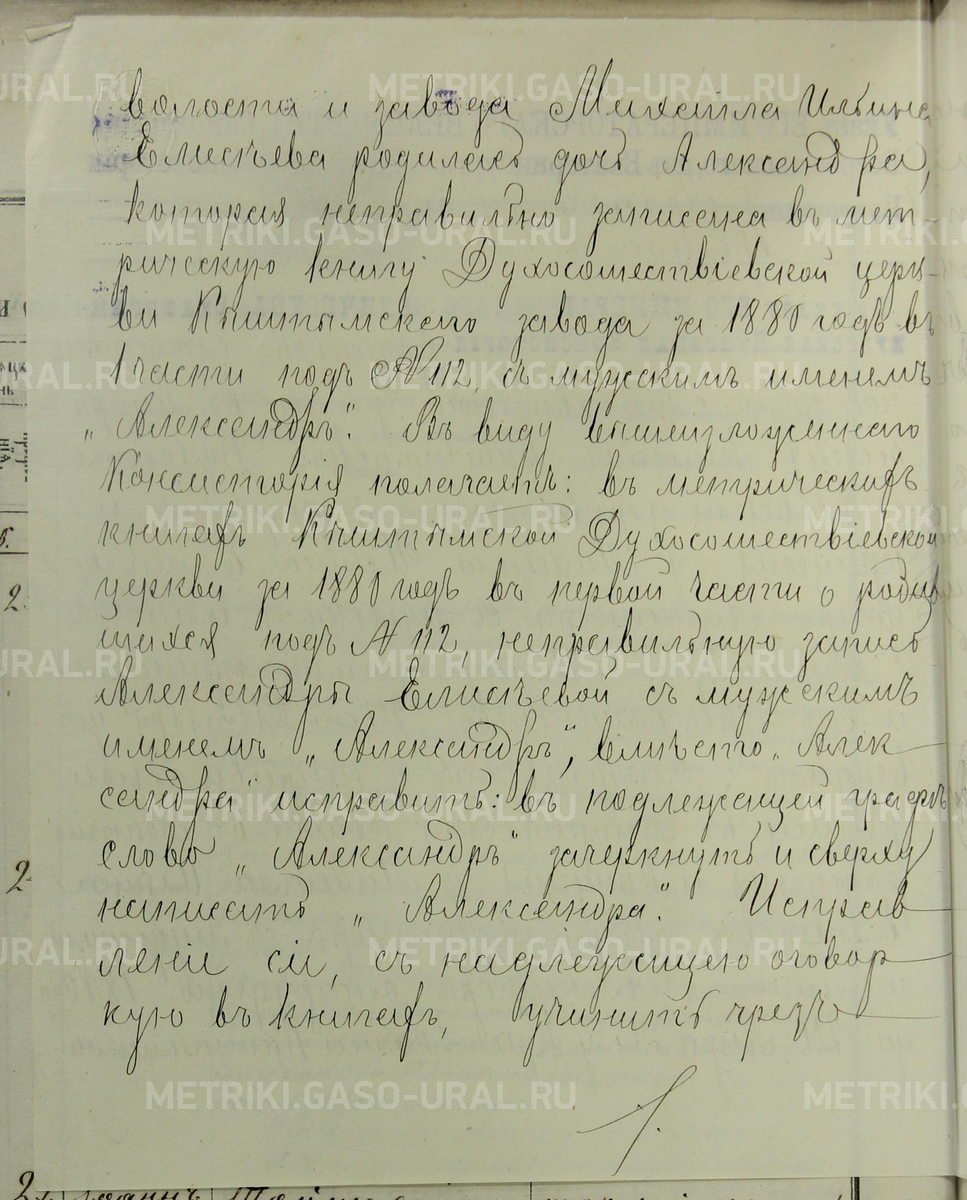 волости и завода Михаила Ильина
Елисѣева родилась дочь Александра,
которая неправильно записана въ мет-
рическую книгу Духосошествіевской церк-
ви Кыштымскаго завода за 1880 годъ въ
1 части подъ № 112, съ мужскимъ именемъ
„Александръ". Въ виду вышеизложеннаго
Консисторія полагаетъ: въ метрическихъ
книгахъ Кыштымской Духосошествіевской
церкви за 1880 годъ въ первой части о родив
шихся подъ № 112, неправильную запись
Александры Елисѣевой съ мужскимъ
именемъ „Александръ", вмѣсто „Алек
сандра" исправить: въ подлежащей графѣ
слово „Александръ" зачеркнуть и сверху
написать „Александра". Исправ
леніе сіе, съ надлежащею оговор
кую въ книгахъ, учинить чрезъ
METRIKI.GASO-URAL.RU
2
2